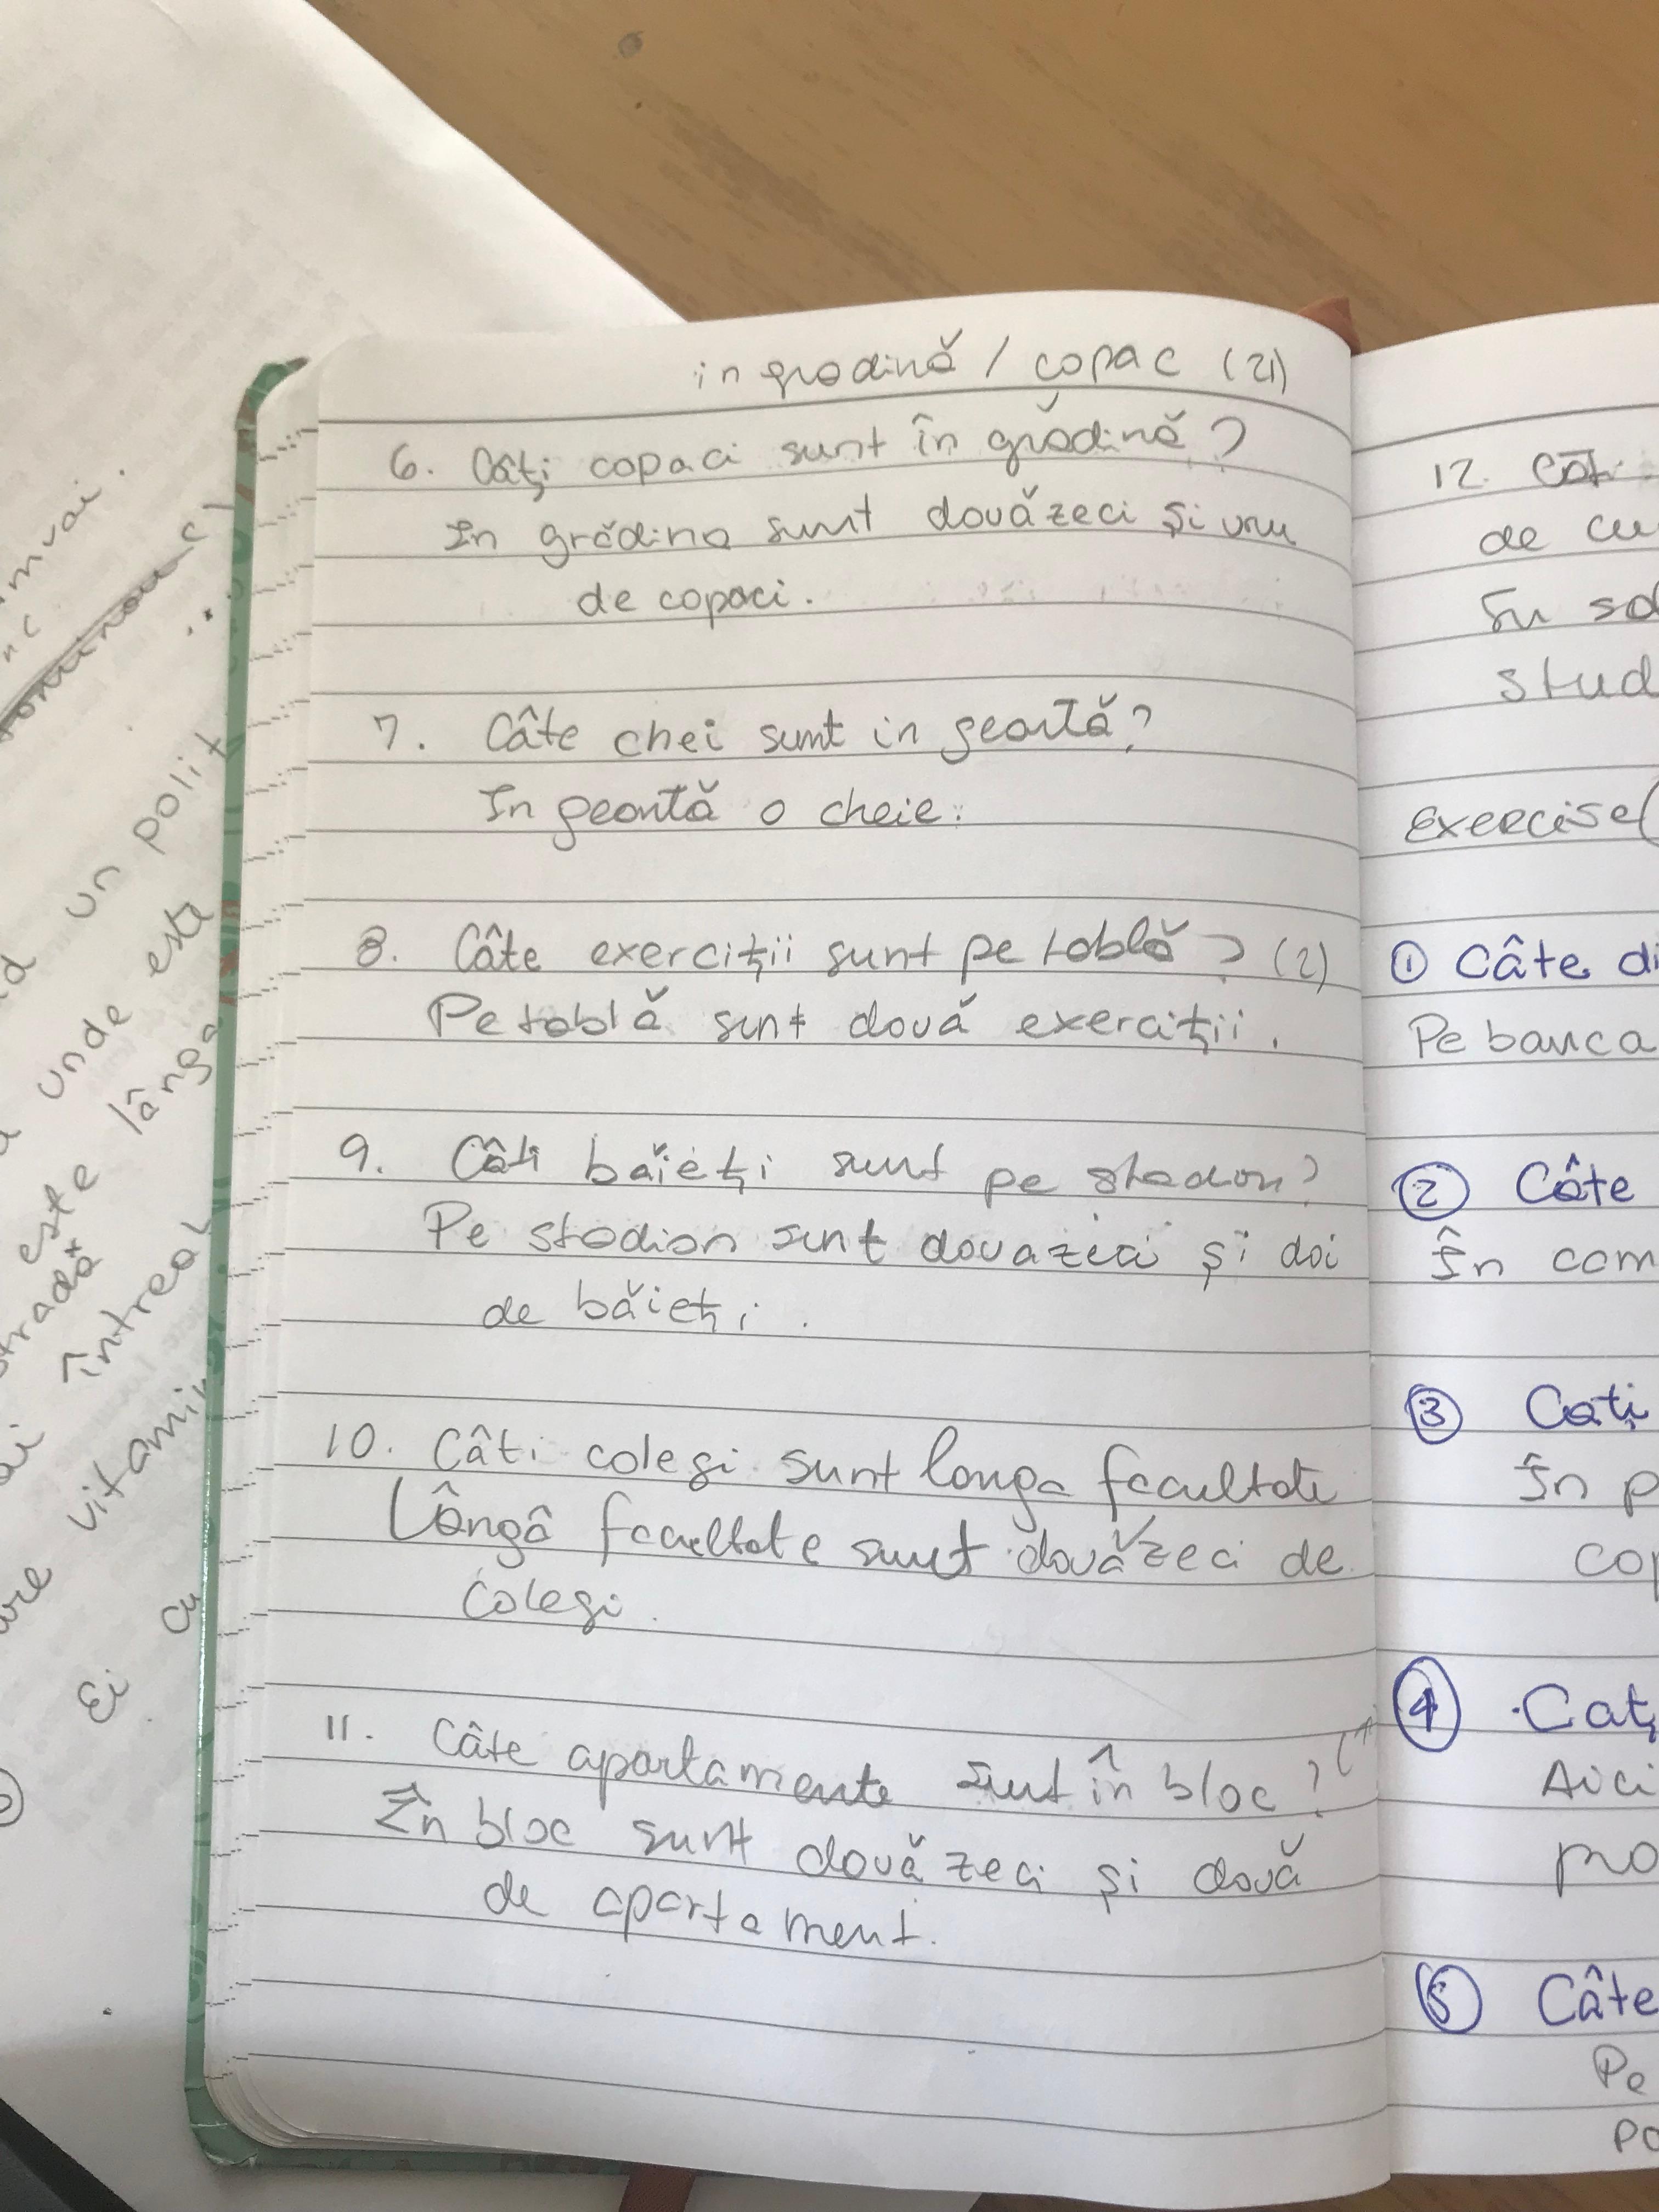 in grodină / copac (21)
6. Câți copaci sunt în grădină?
In grădina sunt douăzeci și unu
de copaci.
7. Câte chei sunt in geantă?
In geantă o cheie.
8. Câte exerciții sunt pe tablă? (2)
Pe tablă sunt două exerciții.
9. Câti băieți sunt pe stadion?
Pe stadion sunt douazeci și doi
de băieți.
10. Câti colegi sunt longa facultate
Lângâ facultate sunt douăzeci de
colegi.
11. Câte apartamente sunt în bloc?
În bloc sunt douăzeci și două
de apartament.
12.
de
În
Exercise
① Câte
Pe banca
② Câte
În
③ Cați
În
④ Caț
Aici
⑤ Câte
Pe
un polit
unde este
este lângă
întreal
vitamin
Ei